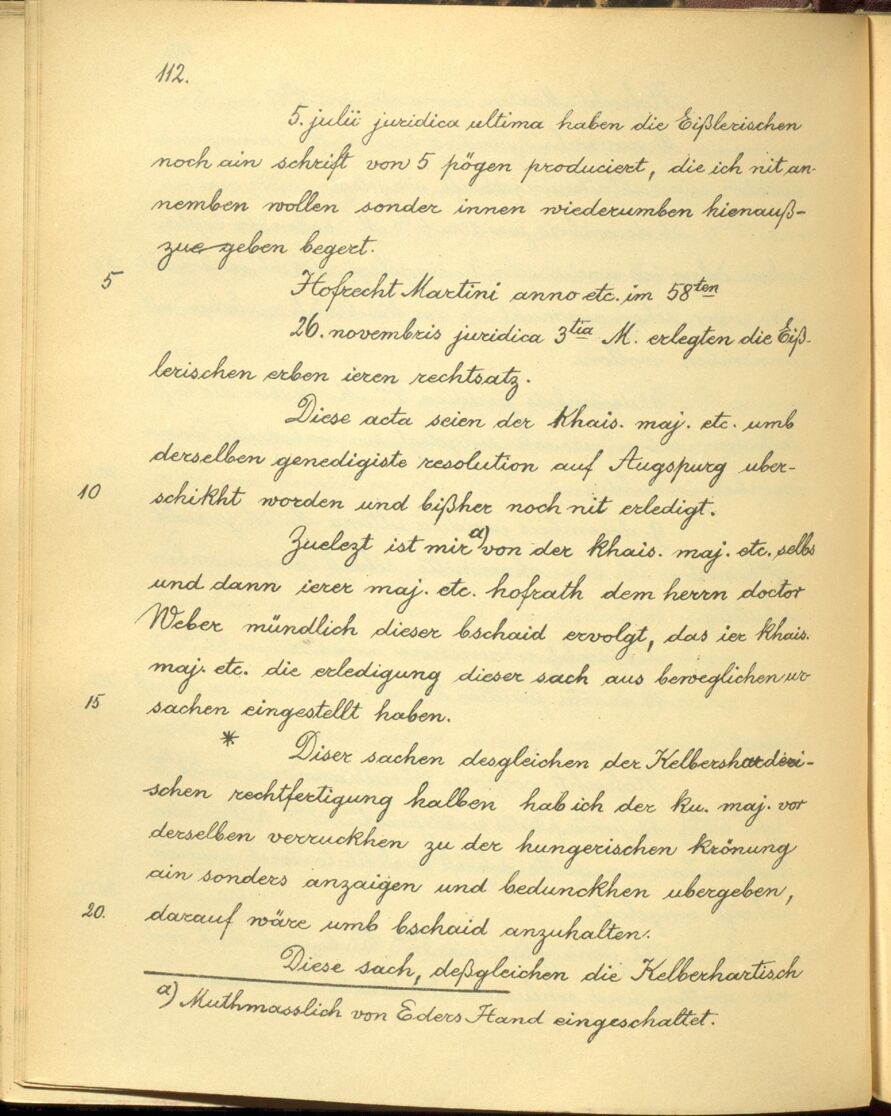 112.
5. julii juridica ultima haben die Eißlerischen
noch ain schrift von 5 pögen produciert, die ich nit an-
nemben wollen sonder innen wiederumben hienauß-
zue geben begert.
5 Hofrecht Martini anno etc. im 58ten
26. novembris juridica 3tia M. erlegten die Eiß-
lerischen erben ieren rechtsatz.
Diese acta seien der khais. maj. etc. umb
derselben genedigiste resolution auf Augspurg uber-
10 schikht worden und bißher noch nit erledigt.
Zuelezt ist mir a) von der khais. maj. etc. selbs
und dann ierer maj. etc. hofrath dem herrn doctor
Weber mündlich dieser bschaid ervolgt, das ier khais.
maj. etc. die erledigung dieser sach aus beweglichen ur-
15 sachen eingestellt haben.
* Diser sachen desgleichen der Kelbersharderi-
schen rechtfertigung halben hab ich der ku. maj. vor
derselben verruckhen zu der hungerischen krönung
ain sonders anzaigen und bedunckhen ubergeben,
20. darauf wäre umb bschaid anzuhalten.
Diese sach, deßgleichen die Kelberhartisch
a) Muthmasslich von Eders Hand eingeschaltet.